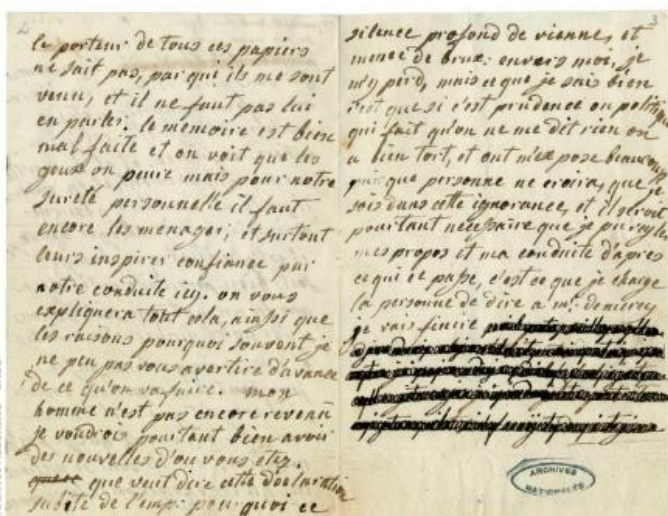 2
le porteur de tous ces papiers
ne sait pas, par qui ils me sont
venu, et il ne faut pas lui
en parler. le memoire est bien
mal faite et on voit que les
geux on peure mais pour notre
sureté personnelle il faut
encore les menager, et surtout
leurs inspirer confiance par
notre conduite icy. on vous
expliquera tout cela, ainssi que
les raisons pourquoi souvent je
ne peu pas vous avertire d'avance
de ce qu'on va faire. mon
homme n'est pas encore revenu
je voudrois pourtant bien avoir
des nouvelles d'ou vous etez.
que veut dire cette déclaration
subite de l'emp: pourquoi ce
3
silence profond de vienne, et
meme de brux: envers moi, je
m'y perd, mais ce que je sais bien
c'est que si c'est prudence ou politique
qui fait qu'on ne me dit rien on
a bien tort, et ont m'expose beaucoup
puisque personne ne croira, que je
sois dans cette ignorance, et il seroit
pourtant necessaire que je pu regle
mes propos et ma conduite d'apres
ce qui ce passe, c'est ce que je charge
la personne de dire a mr: de mercy
je vais finire
ARCHIVES
NATIONALES